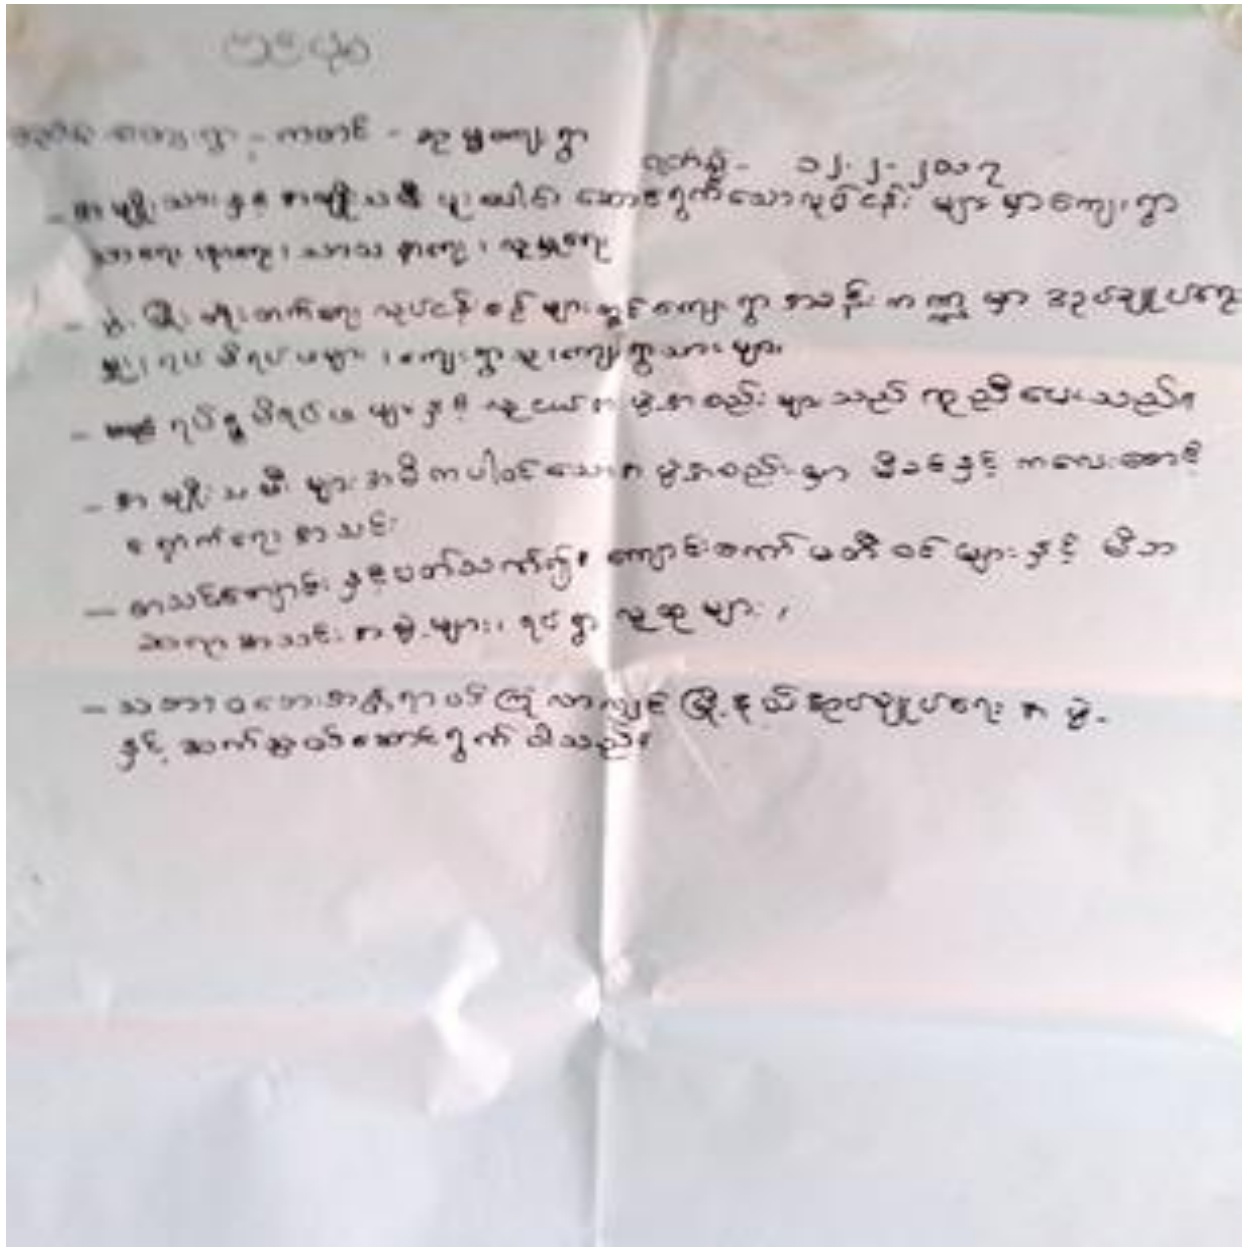 ကျေးရွာ
ရက်စွဲ - ၁၂.၂.၂၀၁၇
- အမျိုးသားနှင့် အမျိုးသမီး ပူးပေါင်း ဆောင်ရွက်သောလုပ်ငန်း များမှာကျေးရွာ
သာရေး၊ နာရေး၊ ဘာသာရေး၊ လူမှုရေး
- ဖွံ့ဖြိုးတိုးတက်ရေး လုပ်ငန်းစဉ် များတွင်ကျေးရွာ အခန်းကဏ္ဍ မှာ အုပ်ချုပ်ရေး
မှူး၊ ရပ်မိရပ်ဖများ ၊ ကျေးရွာသူ၊ကျေးရွာသားများ
- ရပ်ရွာ မိရပ်ဖ များနှင့် လူငယ်အဖွဲ့အစည်းများသည် ကူညီပေးသည်။
- အမျိုးသမီးများအဓိကပါဝင်သောအဖွဲ့အစည်းမှာ မိခင်နှင့် ကလေးစောင့်
ရှောက်ရေး အသင်း
- စာသင်ကျောင်းနှင့်ပတ်သက်၍ ကျောင်းကော်မတီဝင်များနှင့် မိဘ
ဆရာအသင်းအဖွဲ့များ၊ ရပ်ရွာ လူထုများ၊
- သဘာဝဘေးအန္တရာယ်ကြုံလာလျှင် မြို့နယ်အုပ်ချုပ်ရေး အဖွဲ့
နှင့် ဆက်သွယ်ဆောင်ရွက်ပါသည်။